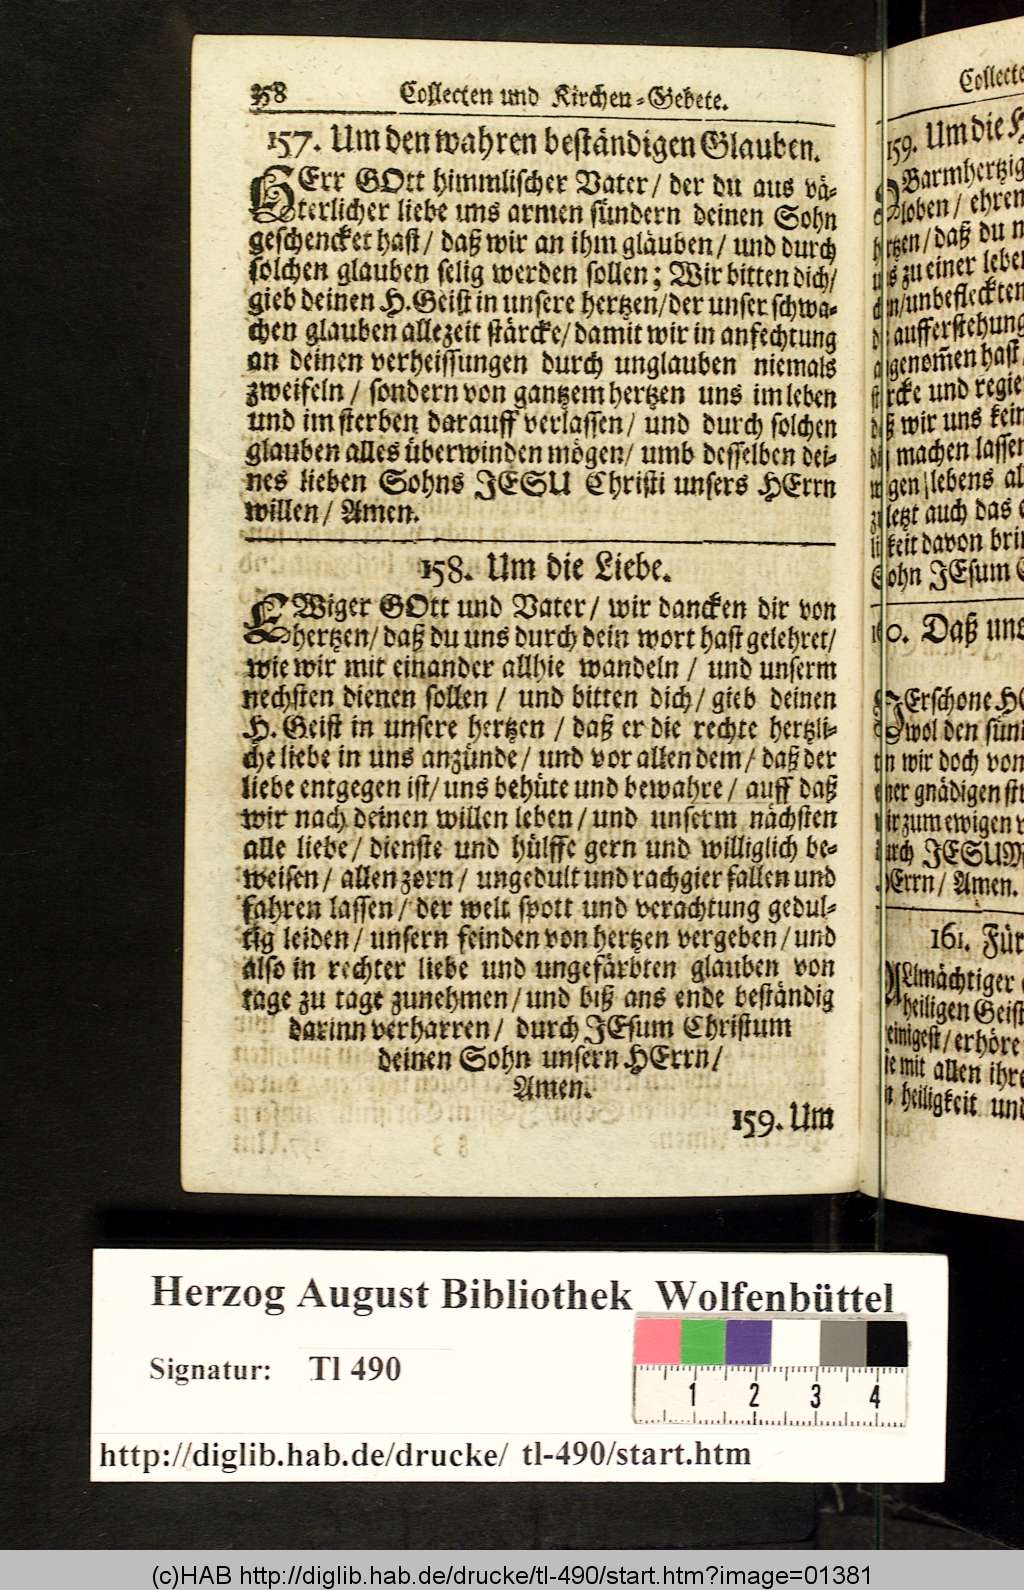 358 Collecten und Kirchen-Gebete.
157. Um den wahren beständigen Glauben.
HErr GOtt himmlischer Vater/ der du aus vä-
terlicher liebe uns armen sündern deinen Sohn
geschencket hast/ daß wir an ihm gläuben/ und durch
solchen glauben selig werden sollen; Wir bitten dich/
gieb deinen H. Geist in unsere hertzen/ der unser schwa-
chen glauben allezeit stärcke/ damit wir in anfechtung
an deinen verheissungen durch unglauben niemals
zweifeln/ sondern von gantzem hertzen uns im leben
und im sterben darauff verlassen/ und durch solchen
glauben alles überwinden mögen/ umb desselben dei-
nes lieben Sohns JESU Christi unsers HErrn
willen/ Amen.
158. Um die Liebe.
EWiger GOtt und Vater/ wir dancken dir von
hertzen/ daß du uns durch dein wort hast gelehret/
wie wir mit einander allhie wandeln/ und unserm
nechsten dienen sollen/ und bitten dich/ gieb deinen
H. Geist in unsere hertzen/ daß er die rechte hertzli-
che liebe in uns anzünde/ und vor allen dem/ daß der
liebe entgegen ist/ uns behüte und bewahre/ auff daß
wir nach deinen willen leben/ und unserm nächsten
alle liebe/ dienste und hülffe gern und williglich be-
weisen/ allen zorn/ ungedult und rachgier fallen und
fahren lassen/ der welt spott und verachtung gedul-
tig leiden/ unsern feinden von hertzen vergeben/ und
also in rechter liebe und ungefärbten glauben von
tage zu tage zunehmen/ und biß ans ende beständig
darinn verharren/ durch JEsum Christum
deinen Sohn unsern HErrn/
Amen.
159. Um
Collecte
159. Um die H
Barmhertzig
loben/ ehren
/ daß du n
zu einer lebe
/unbefleckten
aufferstehung
genom̃en hast
rcke und regie
wir uns kein
machen lassen
gen lebens al
letzt auch das e
keit davon brin
Sohn JEsum C
160. Daß uns
VErschone HE
wol den sün
wir doch von
ner gnädigen st
ir zum ewigen
urch JESUM
HErrn/ Amen.
161. Für
ALlmächtiger
heiligen Geist
einigest/ erhöre
mit allen ihre
heiligkeit und
Herzog August Bibliothek Wolfenbüttel
Signatur: Tl 490
1 2 3 4
http://diglib.hab.de/drucke/ tl-490/start.htm
(c)HAB http://diglib.hab.de/drucke/tl-490/start.htm?image=01381